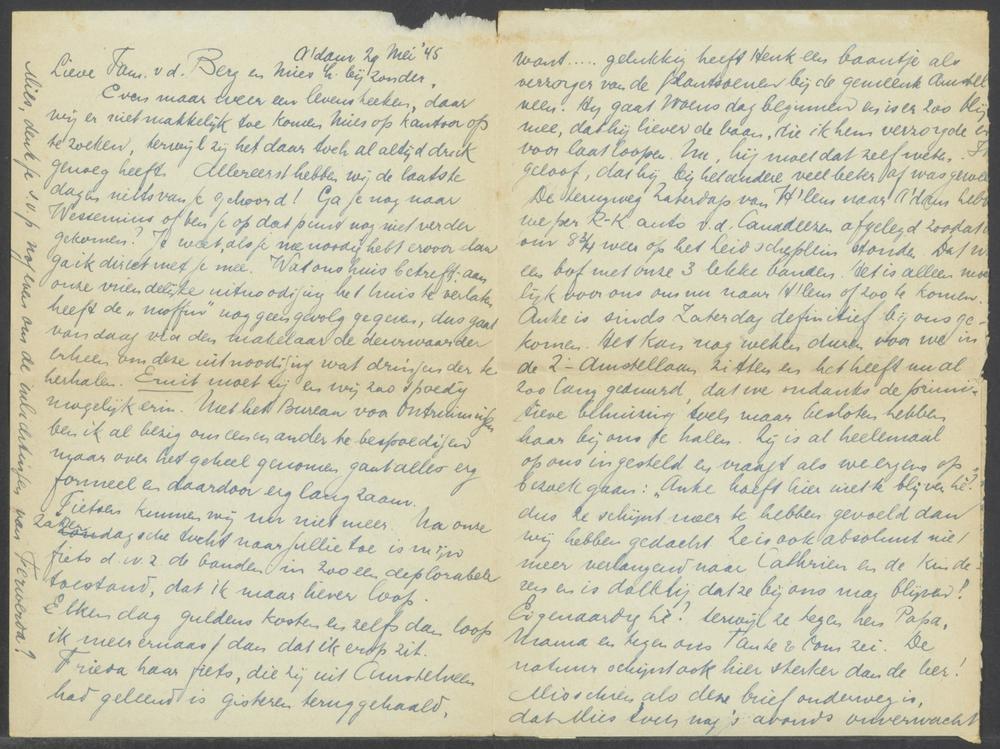 A'dam 29 Mei '45
Lieve Fam. v.d. Berg en Mies i.h. bijzonder
Even maar weer een levensteeken, daar
wij er niet makkelijk toe komen Mies op kantoor op
te zoeken, terwijl zij het daar toch al altijd druk
genoeg heeft. Allereerst hebben wij de laatste
dagen niets van je gehoord! Ga je nog naar
Wessemius of ben je op dat punt nog niet verder
gekomen? Je weet, als je me noodig hebt ervoor dan
ga ik direct met je mee. Wat ons huis betreft: aan
onze vriendelijke uitnoodiging het huis te verlaten
heeft de "moffin" nog geen gevolg gegeven, dus gaat
vandaag via den makelaar de deurwaarder
erheen om deze uitnoodiging wat dringender te
herhalen. Eruit moet zij en wij zoo spoedig
mogelijk erin. Met het Bureau voor Ontruimingen
ben ik al bezig om een en ander te bespoedigen
maar over het geheel genomen gaat alles erg
formeel en daardoor erg langzaam.
Fietsen kunnen wij nu niet meer. Na onze
Zaterdagsche tocht naar jullie toe is mijn
fiets d.w.z. de banden in zoo een deplorabele
toestand, dat ik maar liever loop.
Elken dag guldens kosten en zelfs dan loop
ik meer ernaast dan dat ik erop zit.
Frieda haar fiets, die zij uit Amstelveen
had geleend is gisteren teruggehaald,
Mies, denk je s.v.p. nog eens om de inlichtingen van Ferwerda?
want..... gelukkig heeft Henk een baantje als
verzorger van de plantsoenen bij de gemeente Amstel
veen! Hij gaat Woensdag beginnen en is er zoo blij
mee, dat hij liever de baan, die ik hem verzorgde er
voor laat loopen. Nu, hij moet dat zelf weten. Ik
geloof, dat hij bij het andere veel beter af was geweest
De terugweg Zaterdag van H'lem naar A'dam hebb
we per R-K auto v.d. Canadeezen afgelegd zoodat
om 8 3/4 weer op het Leidscheplein stonden. Dat w
een bof met onze 3 lekke banden. Het is alleen moei
lijk voor ons om nu naar H'lem of zoo te komen.
Anke is sinds Zaterdag definitief bij ons ge-
komen. Het kan nog weken duren voor we in
de Z-Amstellaan zitten en het heeft nu al
zoo lang geduurd, dat we ondanks de primi-
tieve behuizing toch maar besloten hebben
haar bij ons te halen. Zij is al heelemaal
op ons ingesteld en vraagt als we ergens op
bezoek gaan: "Anke hoeft hier niet te blijven hè?"
dus ze schijnt meer te hebben gevoeld dan
wij hebben gedacht. Ze is ook absoluut niet
meer verlangend naar Cathrien en de kinde-
ren en is dolblij dat ze bij ons mag blijven!
Eigenaardig hè! terwijl ze tegen hen Papa,
Mama en tegen ons Tante & Oom zei. De
natuur schijnt ook hier sterker dan de leer!
Misschien, als deze brief onderweg is,
dat Mies toch nog 's avonds onverwacht